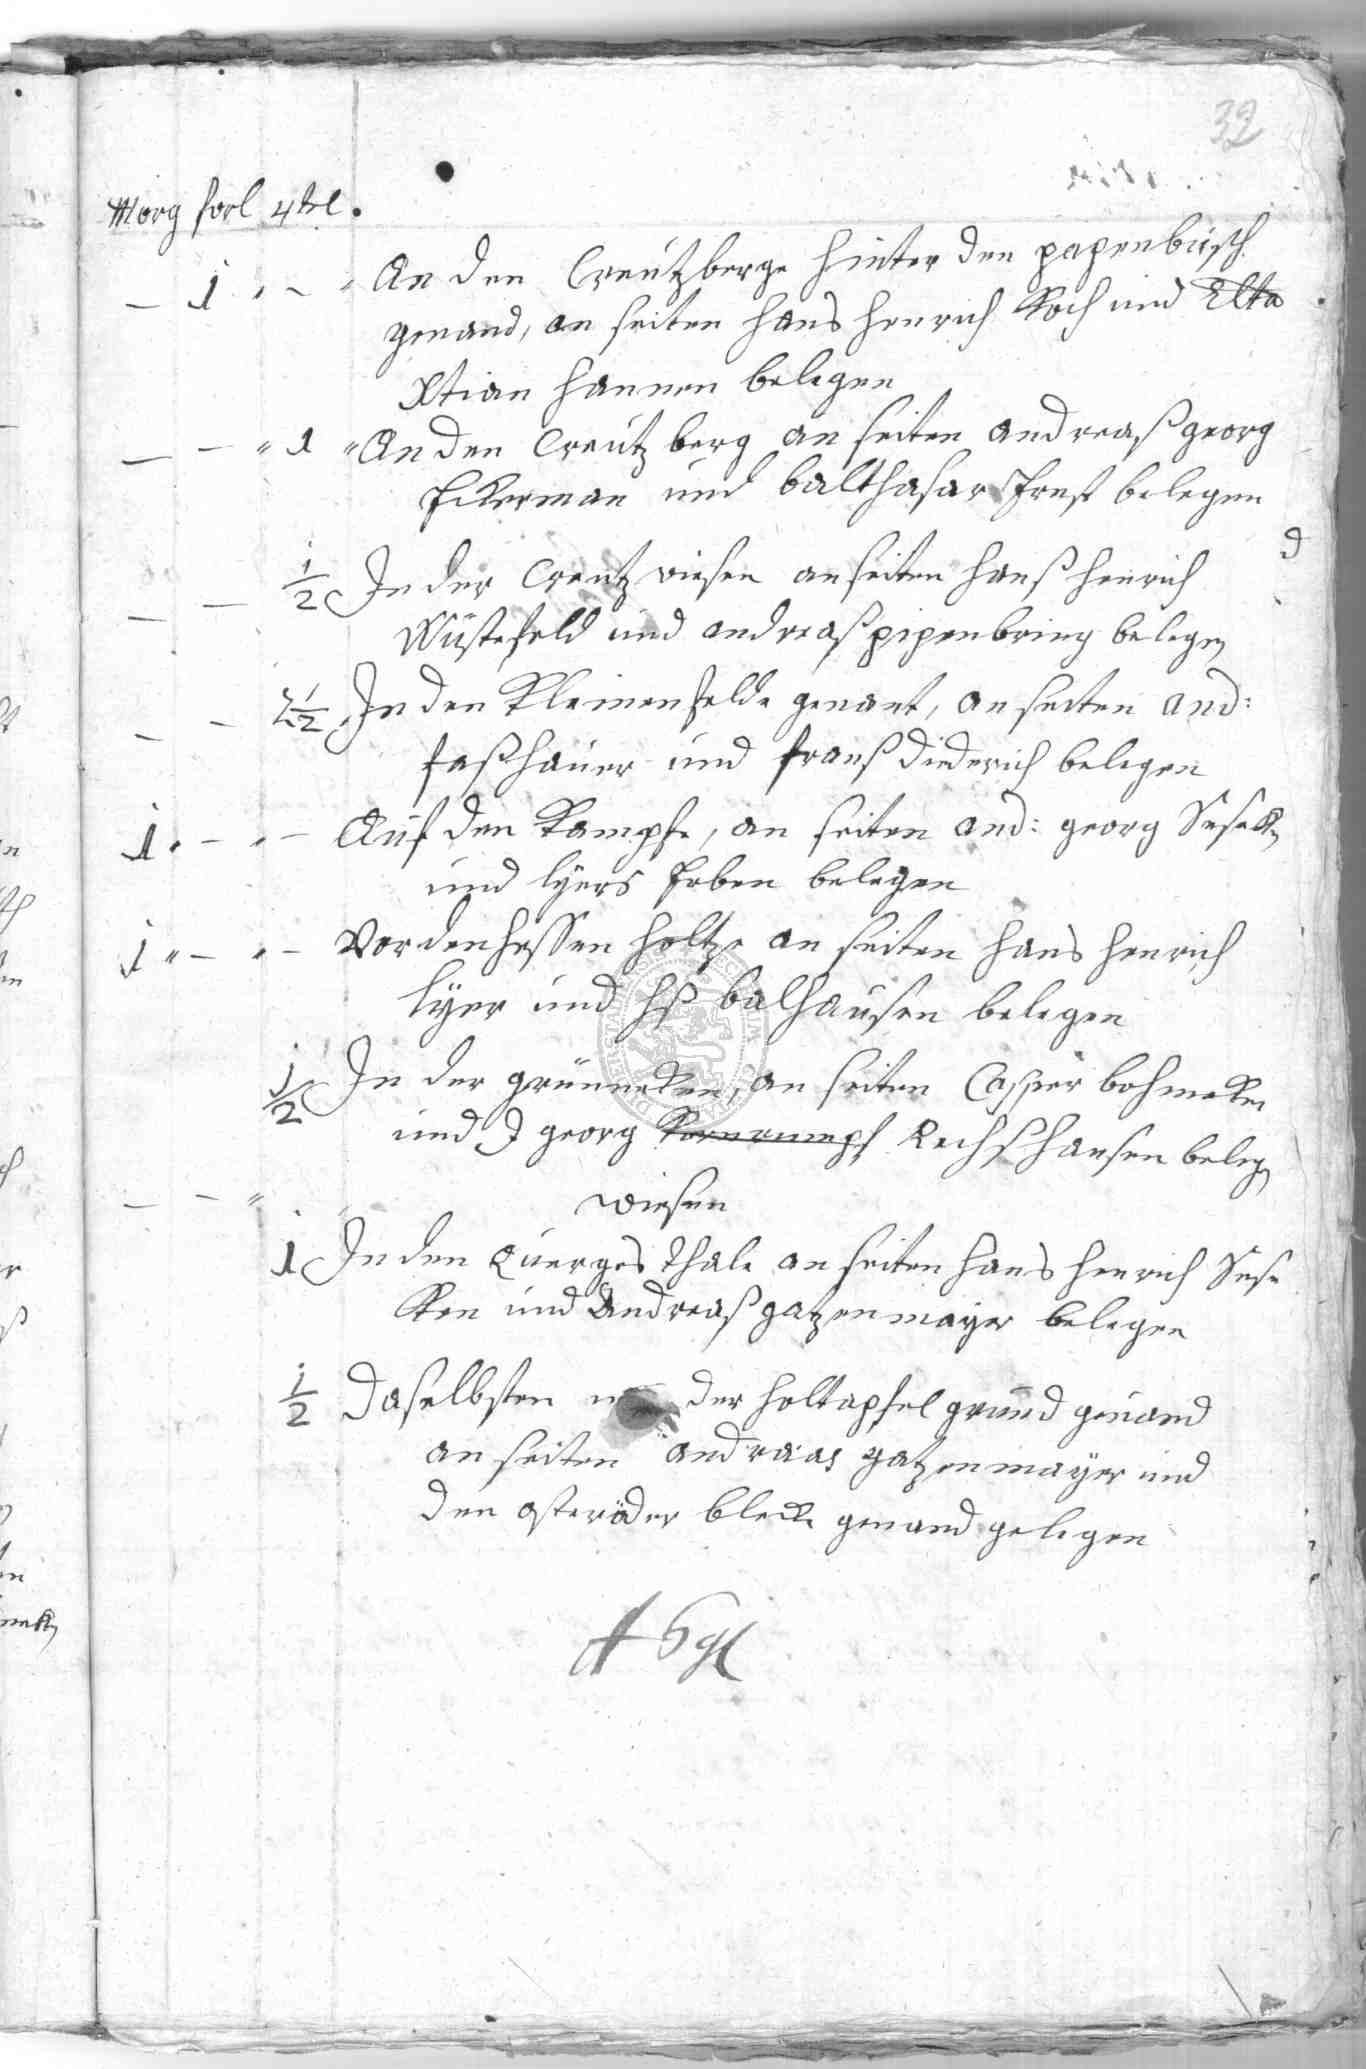 32
Morg forl 4tel.
– 1 " – " An den Creutzberge hinter den papenbusch
genand, an seiten Hans Henrich Koch und Elta
Xtian Hannen belegen
– – " 1 " An den Creutz berg an seiten andreaß georg
Eckerman und balthasar Ernst belegen
– – 1/2 In der Creutz wiesen an seiten Hanß Henrich
Wüstefeld und andreaß pipenbring belegen
– – 2 1/2 In den Kleinenfelde genant, an seiten and:
faßhauer und franß Diederich belegen
1 " – " – Auf den Kampfe, an seiten and: georg Seseken
und lyers Erben belegen
1 " – " – Vor den Hessen Holtze an seiten Hans Henrich
lyer und Hß balhausen belegen
1/2 In der grünneken, an seiten Casper bohmeken
und J georg Kornrumpf Rechshausen belegen
– – "
wiesen
1 In den Querges thale an seiten Hans Henrich Sese
ken und Andreaß gatzenmayer belegen
1/2 Daselbsten der Holtapfel grund genand
an seiten andreas gatzenmayer und
den osteröder bleck genand gelegen